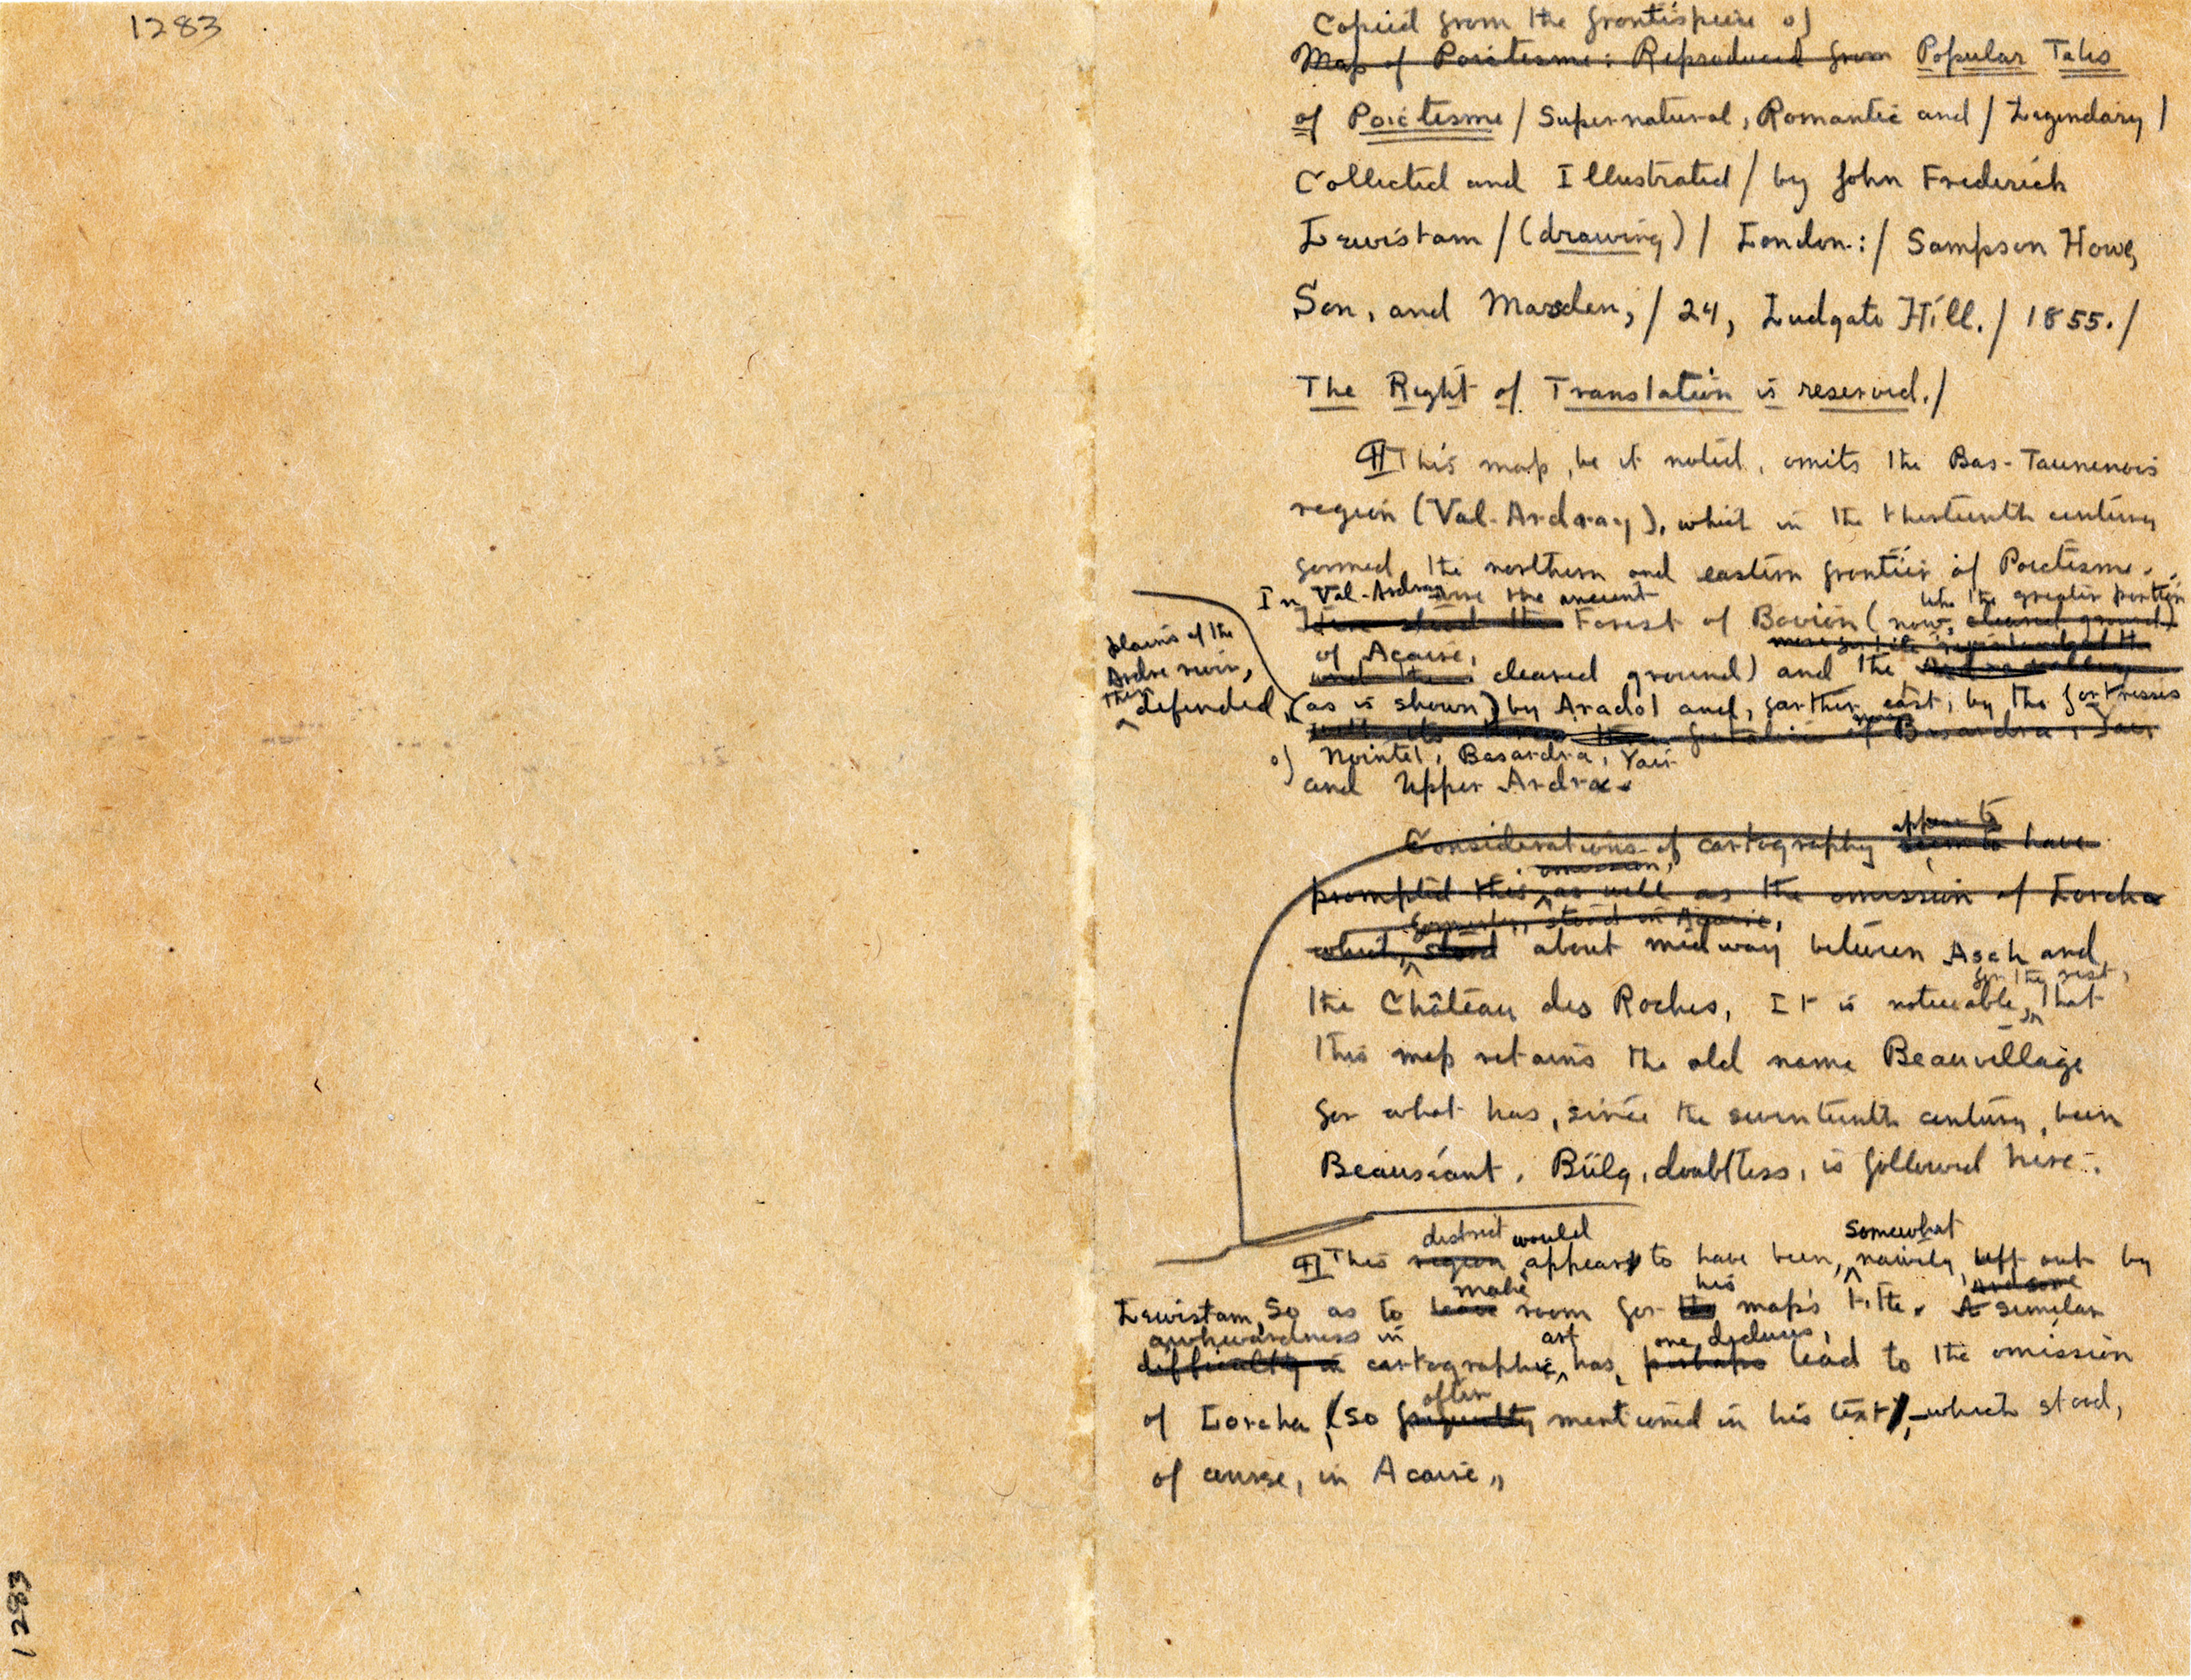 1283
Copied from the frontispiece of
Map of Poictesme: Reproduced from Popular Tales
of Poictesme / Supernatural, Romantic and / Legendary /
Collected and Illustrated / by John Frederick
Lewistam / (drawing) / London: / Sampson Howe,
Son, and Marsden, / 24, Ludgate Hill. / 1855. /
The Right of Translation is reserved. /
¶ This map, be it noted, omits the Bas-Taunenois
region (Val-Ardray), which in the thirteenth century
formed the northern and eastern frontier of Poictesme.
In Val-Ardray were the ancient
the greater portion
Here stood the Forest of Bovion (now, cleared ground)
of Acaire,
and the cleared ground) and the
plains of the
Ardre river,
then defended, (as is shown) by Aradol and, farther east, by the fortresses
of Basardra, Yair
of Nointel, Basardra, Yair
and Upper Ardra.
appear to
Considerations of cartography seem to have
omission,
prompted this as well as the omission of Lorcha
formerly, stood in Acaire,
which, stood about midway between Asch and
the Château des Roches. It is noticeable, for the rest, that
this map retains the old name Beauvillage
for what has, since the seventeenth century, been
Beauséant. Bülg, doubtless, is followed here.
district would somewhat
¶ This region appears to have been, naively, left out by
make his and some
Lewistam, so as to leave room for the map's title. A similar
awkwardness in art one deduces,
difficulty in cartographic has, perhaps lead to the omission
often
of Lorcha (so frequently mentioned in his text), – which stood,
of course, in Acaire,
1283